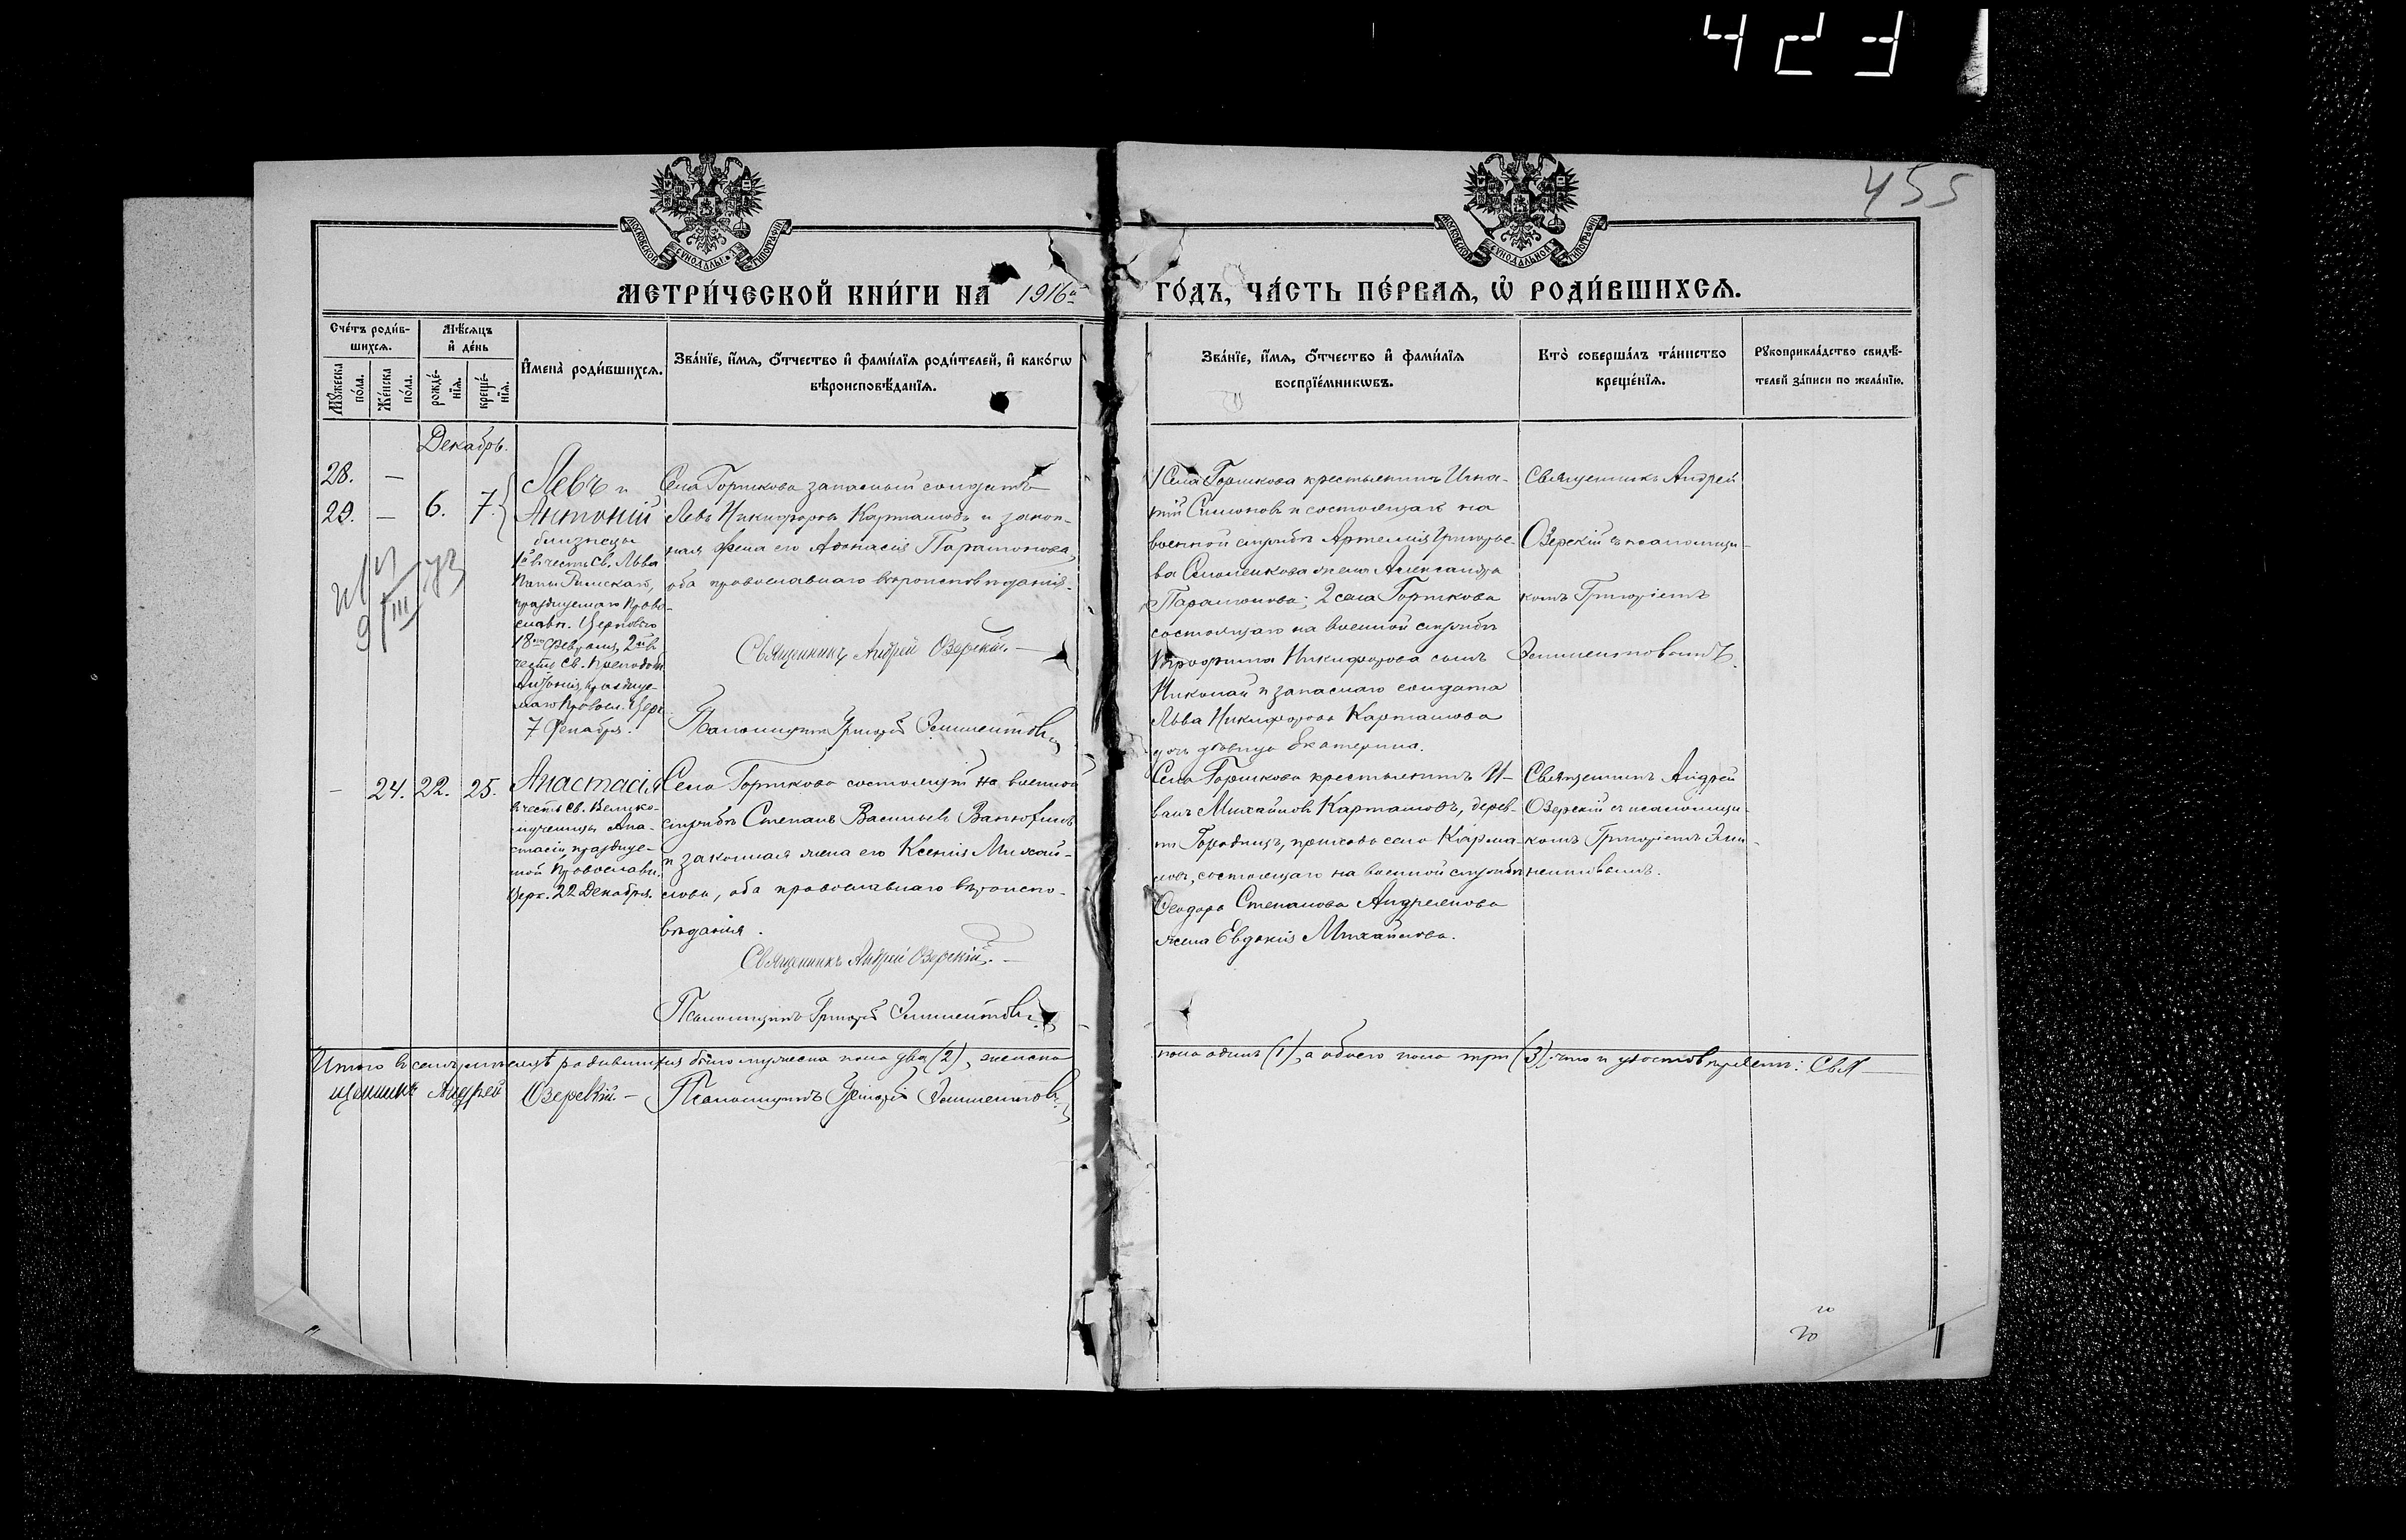 423
455
МОСКОВСКОЙ СѴНОДАЛЬНОЙ ТИПОГРАФІИ
МОСКОВСКОЙ СѴНОДАЛЬНОЙ ТИПОГРАФІИ
МЕТРИ́ЧЕСКОЙ КНИ́ГИ НА 1916й ГО́ДЪ, ЧА́СТЬ ПЕ́РВАЯ, Ѡ҆ РОДИ́ВШИХСЯ.
Сче́тъ роди́в-
шихся.
Мѣ́сяцъ
и҆ де́нь
Мꙋ́жеска
по́ла.
Же́нска
по́ла.
рожде́-
нїя.
креще́-
нїя.
И҆мена̀ роди́вшихся.
Зва́нїе, и҆́мя, ѻ҆́тчество и҆ фами́лїя роди́телей, и҆ како́гѡ
вѣроисповѣ́данїя.
Зва́нїе, и҆́мя, ѻ҆́тчество и҆ фами́лїя
воспрїе́мникѡвъ.
Кто̀ соверша́лъ та́инство
креще́нїя.
Рꙋкоприкла́дство свидѣ́-
телей за́писи по жела́нїю.
Декабрь.
28. —
29. — 6. 7.
Левъ и
Антоній
близнецы
1й въ честь Св. Льва
Папы Римскаго,
празднуемаго Право-
славн. Церковью
18го Февраля, 2й въ
честь св. Преподобн.
Антонія, праздну-
маго Правосл. Церк.
7 Декабря.
Села Горшкова запасный солдатъ
Левъ Никифоровъ Карташовъ и закон-
ная жена его Афанасія Парамонова,
оба православнаго вѣроисповѣданія.
Священникъ Андрей Озерскій. —
Псаломщикъ Григорій
1 Села Горшкова крестьянинъ Игна-
тій Симоновъ и состоящаго на
военной службѣ Артемія Григорье-
ва жена Александра
Парамонова; 2 села Горшкова
состоящаго на военной службѣ
Никифорова сынъ
Николай и запаснаго солдата
Льва Никифорова Карташова
дочь дѣвица Екатерина.
Священникъ Андрей
Озерскій съ псаломщи-
комъ Григоріемъ
— 24. 22. 25.
Анастасія
въ честь Св. Велико-
мученицы Ана-
стасіи празднуе-
мой Православн.
Церк. 22 Декабря.
Села Горшкова состоящій на военной
службѣ Степанъ Васильевъ
и законная жена его Ксенія Михай-
лова, оба православнаго вѣроиспо-
вѣданія.
Священникъ Андрей Озерскій. —
Псаломщикъ Григорій
Села Горшкова крестьянинъ И-
ванъ Михайловъ Карташовъ, дерев-
ни прихода села
состоящаго на военной службѣ
Ѳеодора Степанова
жена Евдокія Михайлова.
Священникъ Андрей
Озерскій съ псаломщи-
комъ Григоріемъ
Итого въ семъ мѣсяцѣ родившихся было мужеска пола два (2), женска
пола одинъ (1), а обоего пола три (3), что и удостовѣряемъ: Свя-
щенникъ Андрей Озерскій. — Псаломщикъ Григорій